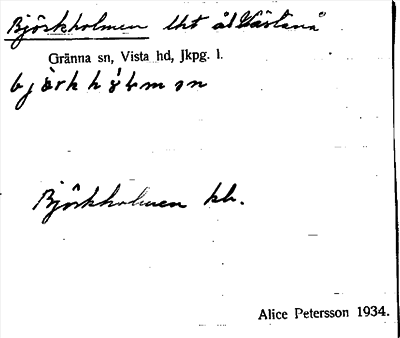 Björkholmen lht å Västanå
Gränna sn, Vista hd, Jkpg. l.
Björkholmen kh.
Alice Petersson 1934.